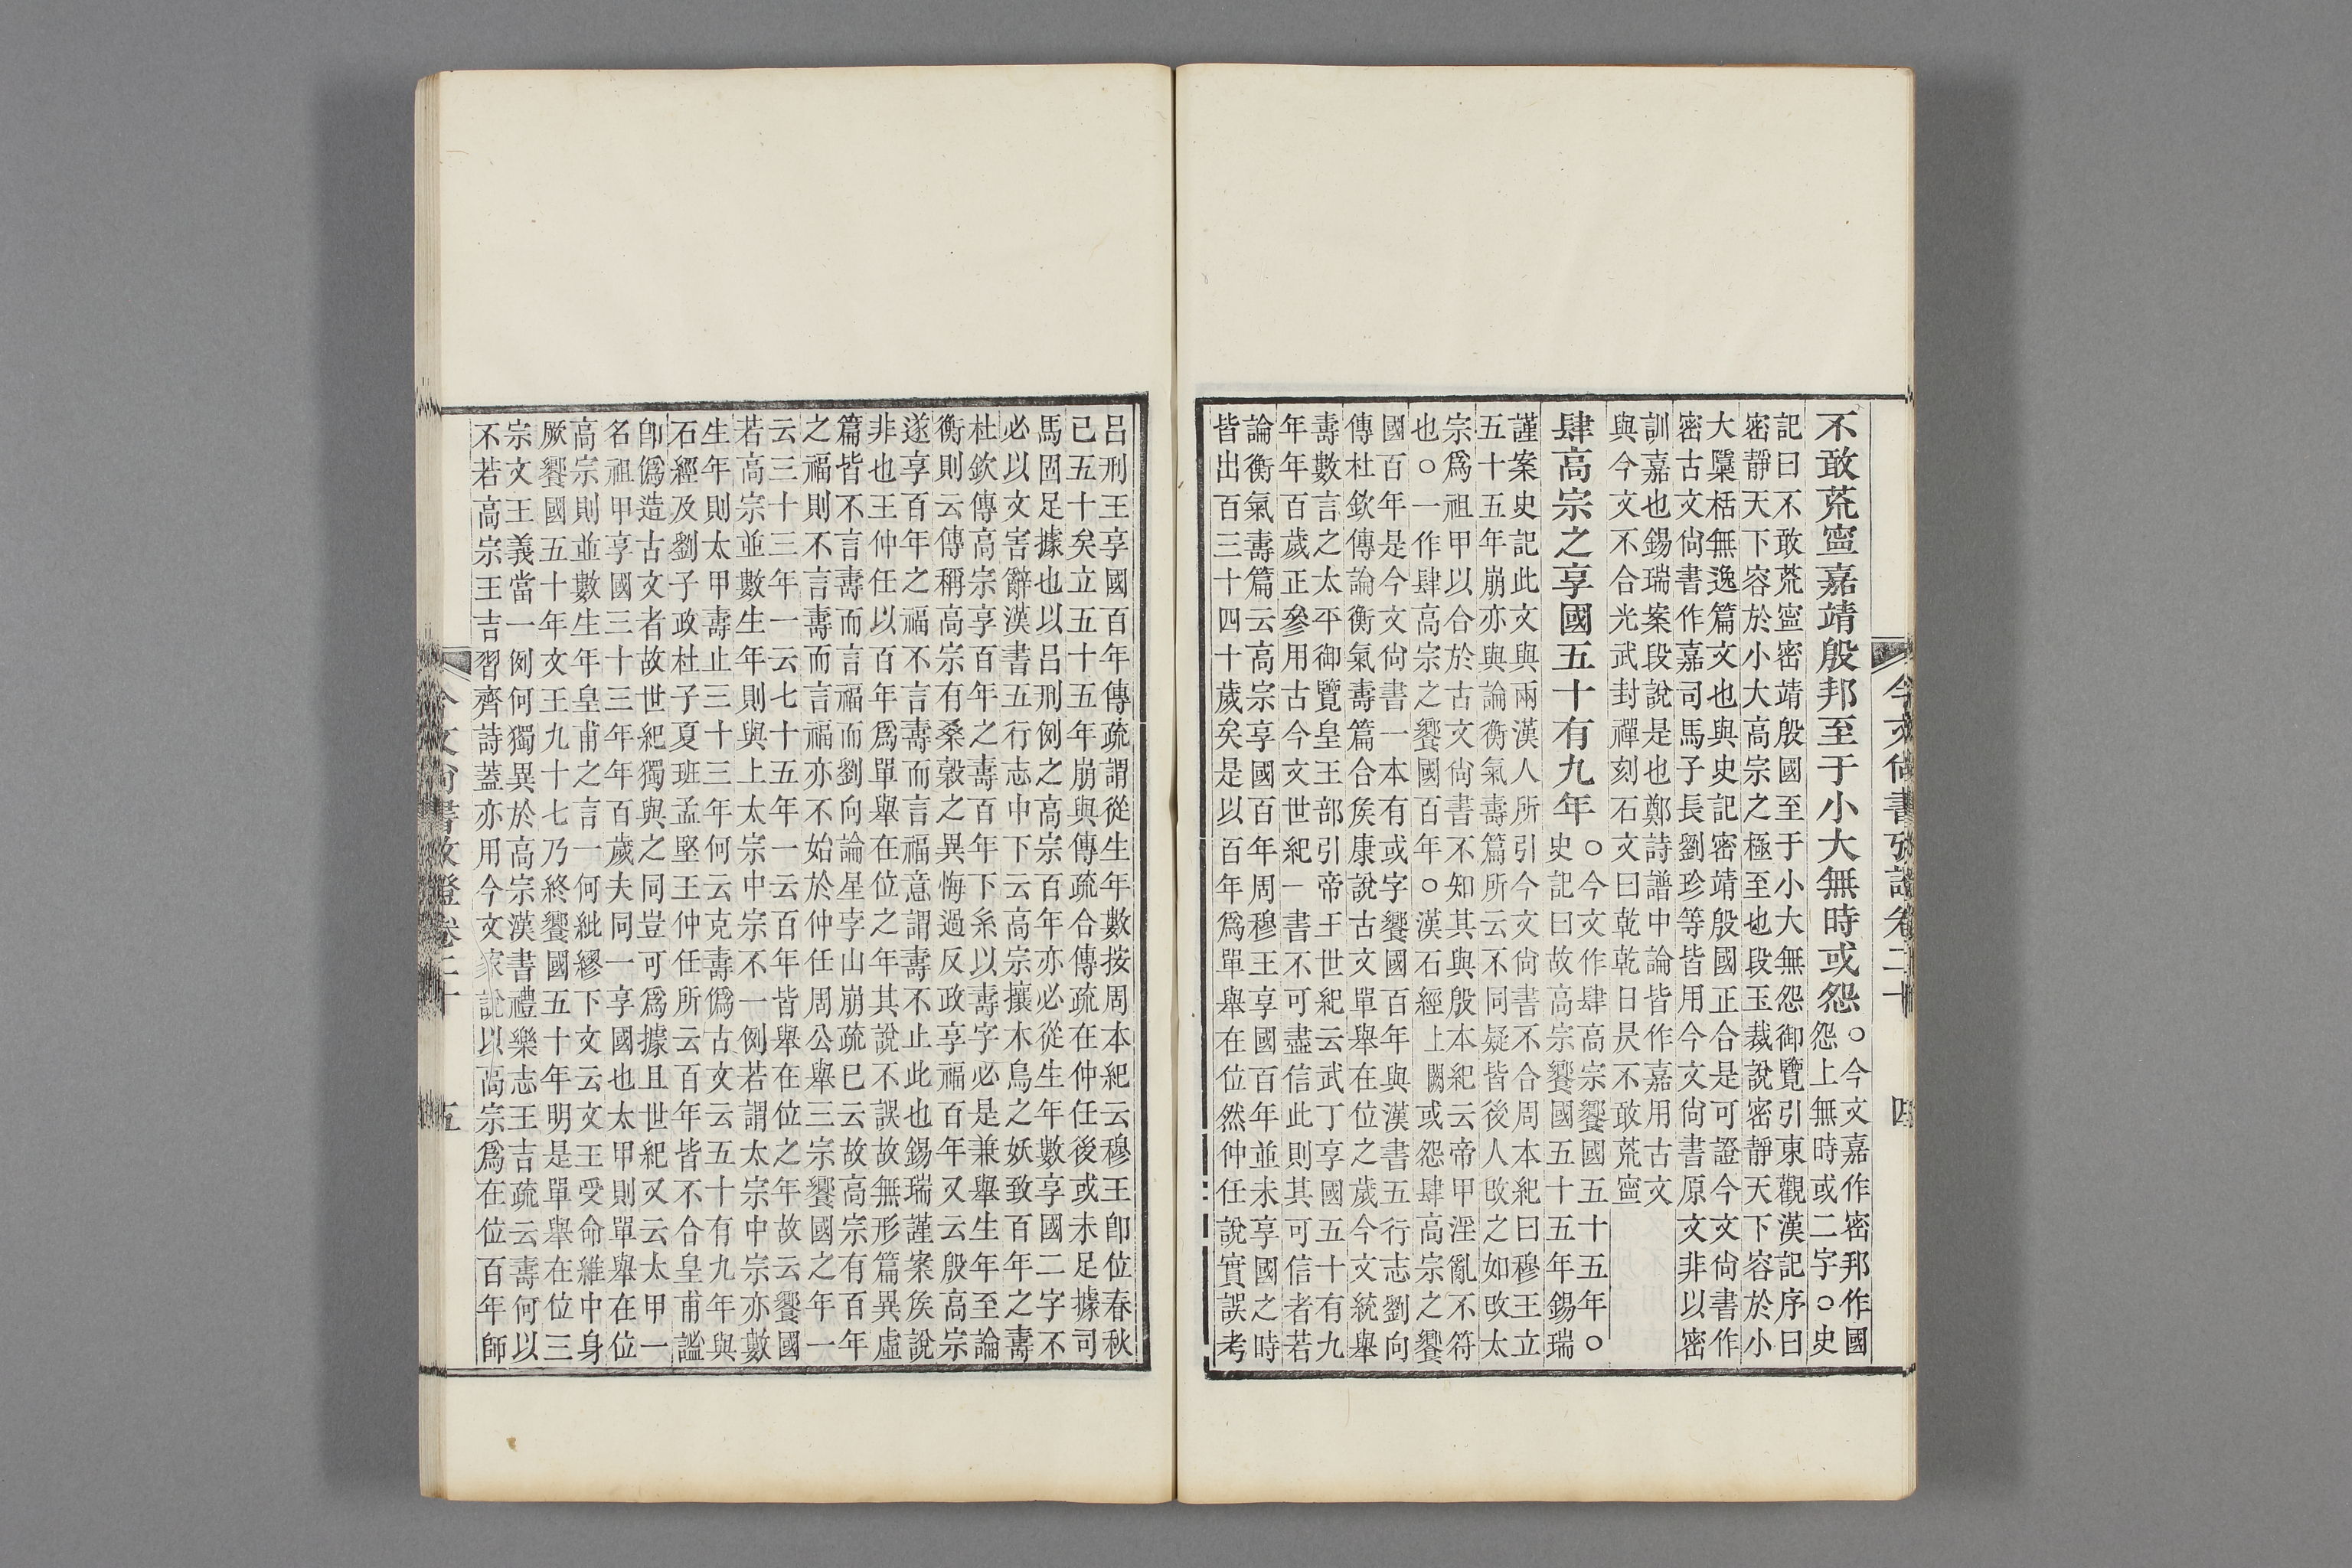 今文尚書攷證卷二十 四
不敢荒寧嘉靖殷邦至于小大無時或怨
○今文嘉作密邦作國
怨上無時或二字○史
記曰不敢荒寧密靖殷國至于小大無怨御覽引東觀漢記序曰
密靜天下容於小大高宗之極至也段玉裁說密靜天下容於小
大檃栝無逸篇文也與史記密靖殷國正合是可證今文尚書作
密古文尚書作嘉司馬子長劉珍等皆用今文尚書原文非以密
訓嘉也錫瑞案段說是也鄭詩譜中論皆作嘉用古文
與今文不合光武封禪刻石文曰乾乾日昃不敢荒寧
肆高宗之享國五十有九年
○今文作肆高宗饗國五十五年○
史記曰故高宗饗國五十五年錫瑞
謹案史記此文與兩漢人所引今文尚書不合周本紀曰穆王立
五十五年崩亦與論衡氣壽篇所云不同疑皆後人改之如改太
宗爲祖甲以合於古文尚書不知其與殷本紀云帝甲淫亂不符
也○一作肆高宗之饗國百年○漢石經上闕或怨肆高宗之饗
國百年是今文尚書一本有或字饗國百年與漢書五行志劉向
傳杜欽傳論衡氣壽篇合矦康說古文單舉在位之歲今文統舉
壽數言之太平御覽皇王部引帝王世紀云武丁享國五十有九
年年百歲正參用古今文世紀一書不可盡信此則其可信者若
論衡氣壽篇云高宗享國百年周穆王享國百年並未享國之時
皆出百三十四十歲矣是以百年爲單舉在位然仲任說實誤考
呂刑王享國百年傳疏謂從生年數按周本紀云穆王卽位春秋
已五十矣立五十五年崩與傳疏合傳疏在仲任後或未足據司
馬固足據也以呂刑例之高宗百年亦必從生年數享國二字不
必以文害辭漢書五行志中下云高宗攘木鳥之妖致百年之壽
杜欽傳高宗享百年之壽百年下系以壽字必是兼舉生年至論
衡則云傳稱高宗有桑穀之異悔過反政享福百年又云殷高宗
遂享百年之福不言壽而言福意謂壽不止此也錫瑞謹案矦說
非也王仲任以百年爲單舉在位之年其說不誤故無形篇異虛
篇皆不言壽而言福而劉向論星孛山崩疏已云故高宗有百年
之福則不言壽而言福亦不始於仲任周公舉三宗饗國之年一
云三十三年一云七十五年一云百年皆舉在位之年故云饗國
若高宗並數生年則與上太宗中宗不一例若謂太宗中宗亦數
生年則太甲壽止三十三年何云克壽僞古文云五十有九年與
石經及劉子政杜子夏班孟堅王仲任所云百年皆不合皇甫謐
卽僞造古文者故世紀獨與之同豈可爲據且世紀又云太甲一
名祖甲享國三十三年年百歲夫同一享國也太甲則單舉在位
高宗則並數生年皇甫之言一何紕繆下文云文王受命維中身
厥饗國五十年文王九十七乃終饗國五十年明是單舉在位三
宗文王義當一例何獨異於高宗漢書禮樂志王吉疏云壽何以
不若高宗王吉習齊詩蓋亦用今文家說以高宗爲在位百年師
今文尚書攷證卷二十 五